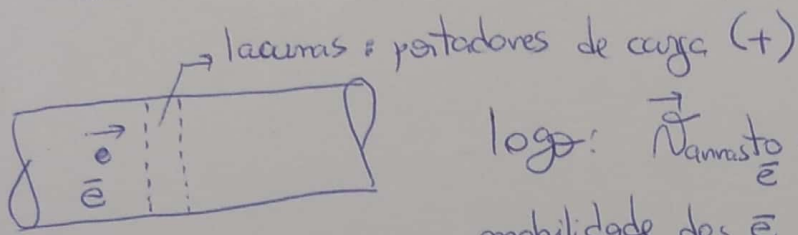 lacunas : portadores de carga (+)
e
ē
logo: V⃗arrasto ē
mobilidade dos ē